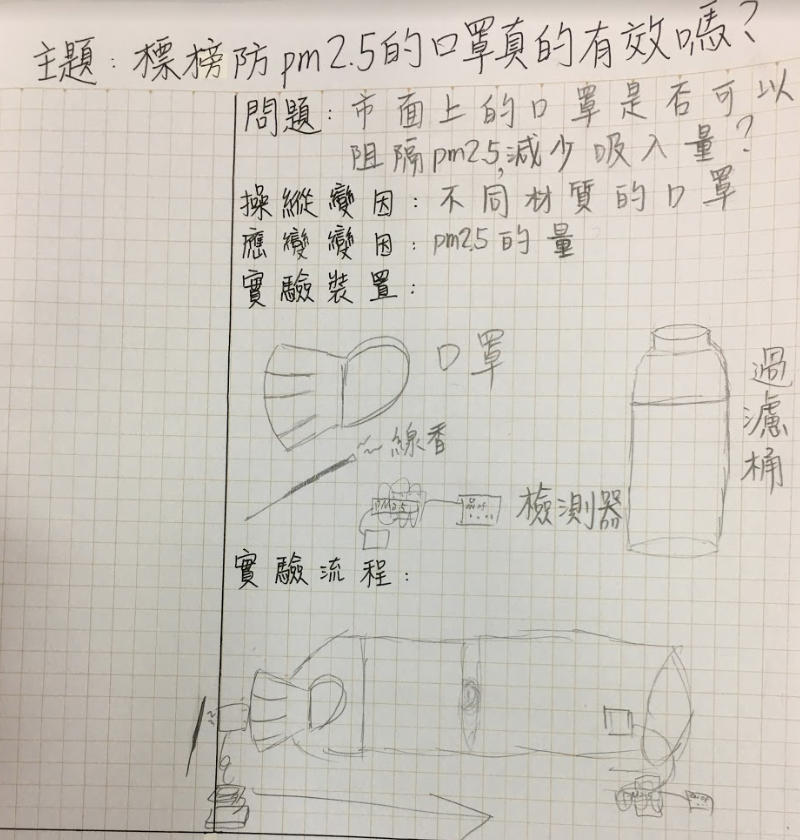 主題：標榜防pm2.5的口罩真的有效嗎？
問題：市面上的口罩是否可以
阻隔pm2.5,減少吸入量？
操縱變因：不同材質的口罩
應變變因：pm2.5的量
實驗裝置：
口罩
過濾桶
線香
PM2.5
檢測器
實驗流程：